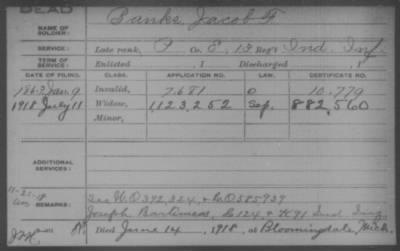 DEAD
NAME OF SOLDIER: Banks, Jacob F.
SERVICE: Late rank, P Co. E, 13 Reg't Ind. Inf.
TERM OF SERVICE: Enlisted , 1 Discharged , 1
DATE OF FILING. CLASS. APPLICATION NO. LAW. CERTIFICATE NO.
1863 Jan 9 Invalid, 7.681 10.779
1918 July 11 Widow, 1,123,252 Sep. 882,560
Minor,
ADDITIONAL SERVICES:
11-25-18
REMARKS: See W.O. 392,324, & C.O 585939
Joseph Bartimess, &
Died June 14, 1918, at Bloomingdale, Mich.